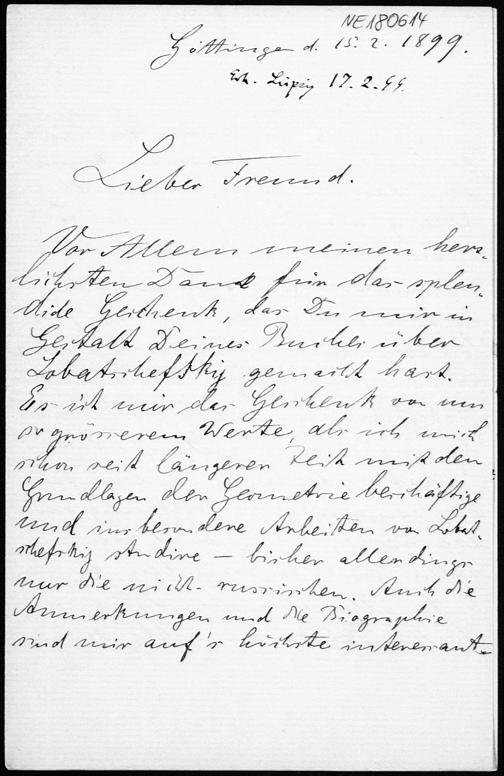 NE180614
Göttingen d. 15. 2. 1899.
Erh. Leipzig 17. 2. 99.
Lieber Freund.
Vor Allem meinen herz-
lichsten Dank für das splen-
dide Geschenk, das Du mir in
Gestalt Deines Buches über
Lobatschefsky gemacht hast.
Es ist mir das Geschenk von um
so grösserem Werte, als ich mich
schon seit längerer Zeit mit den
Grundlagen der Geometrie beschäftige
und insbesondere Arbeiten von Lobat-
schefskij studire – bisher allerdings
nur die nicht-russischen. Auch die
Anmerkungen und die Biographie
sind mir auf's höchste interessant.